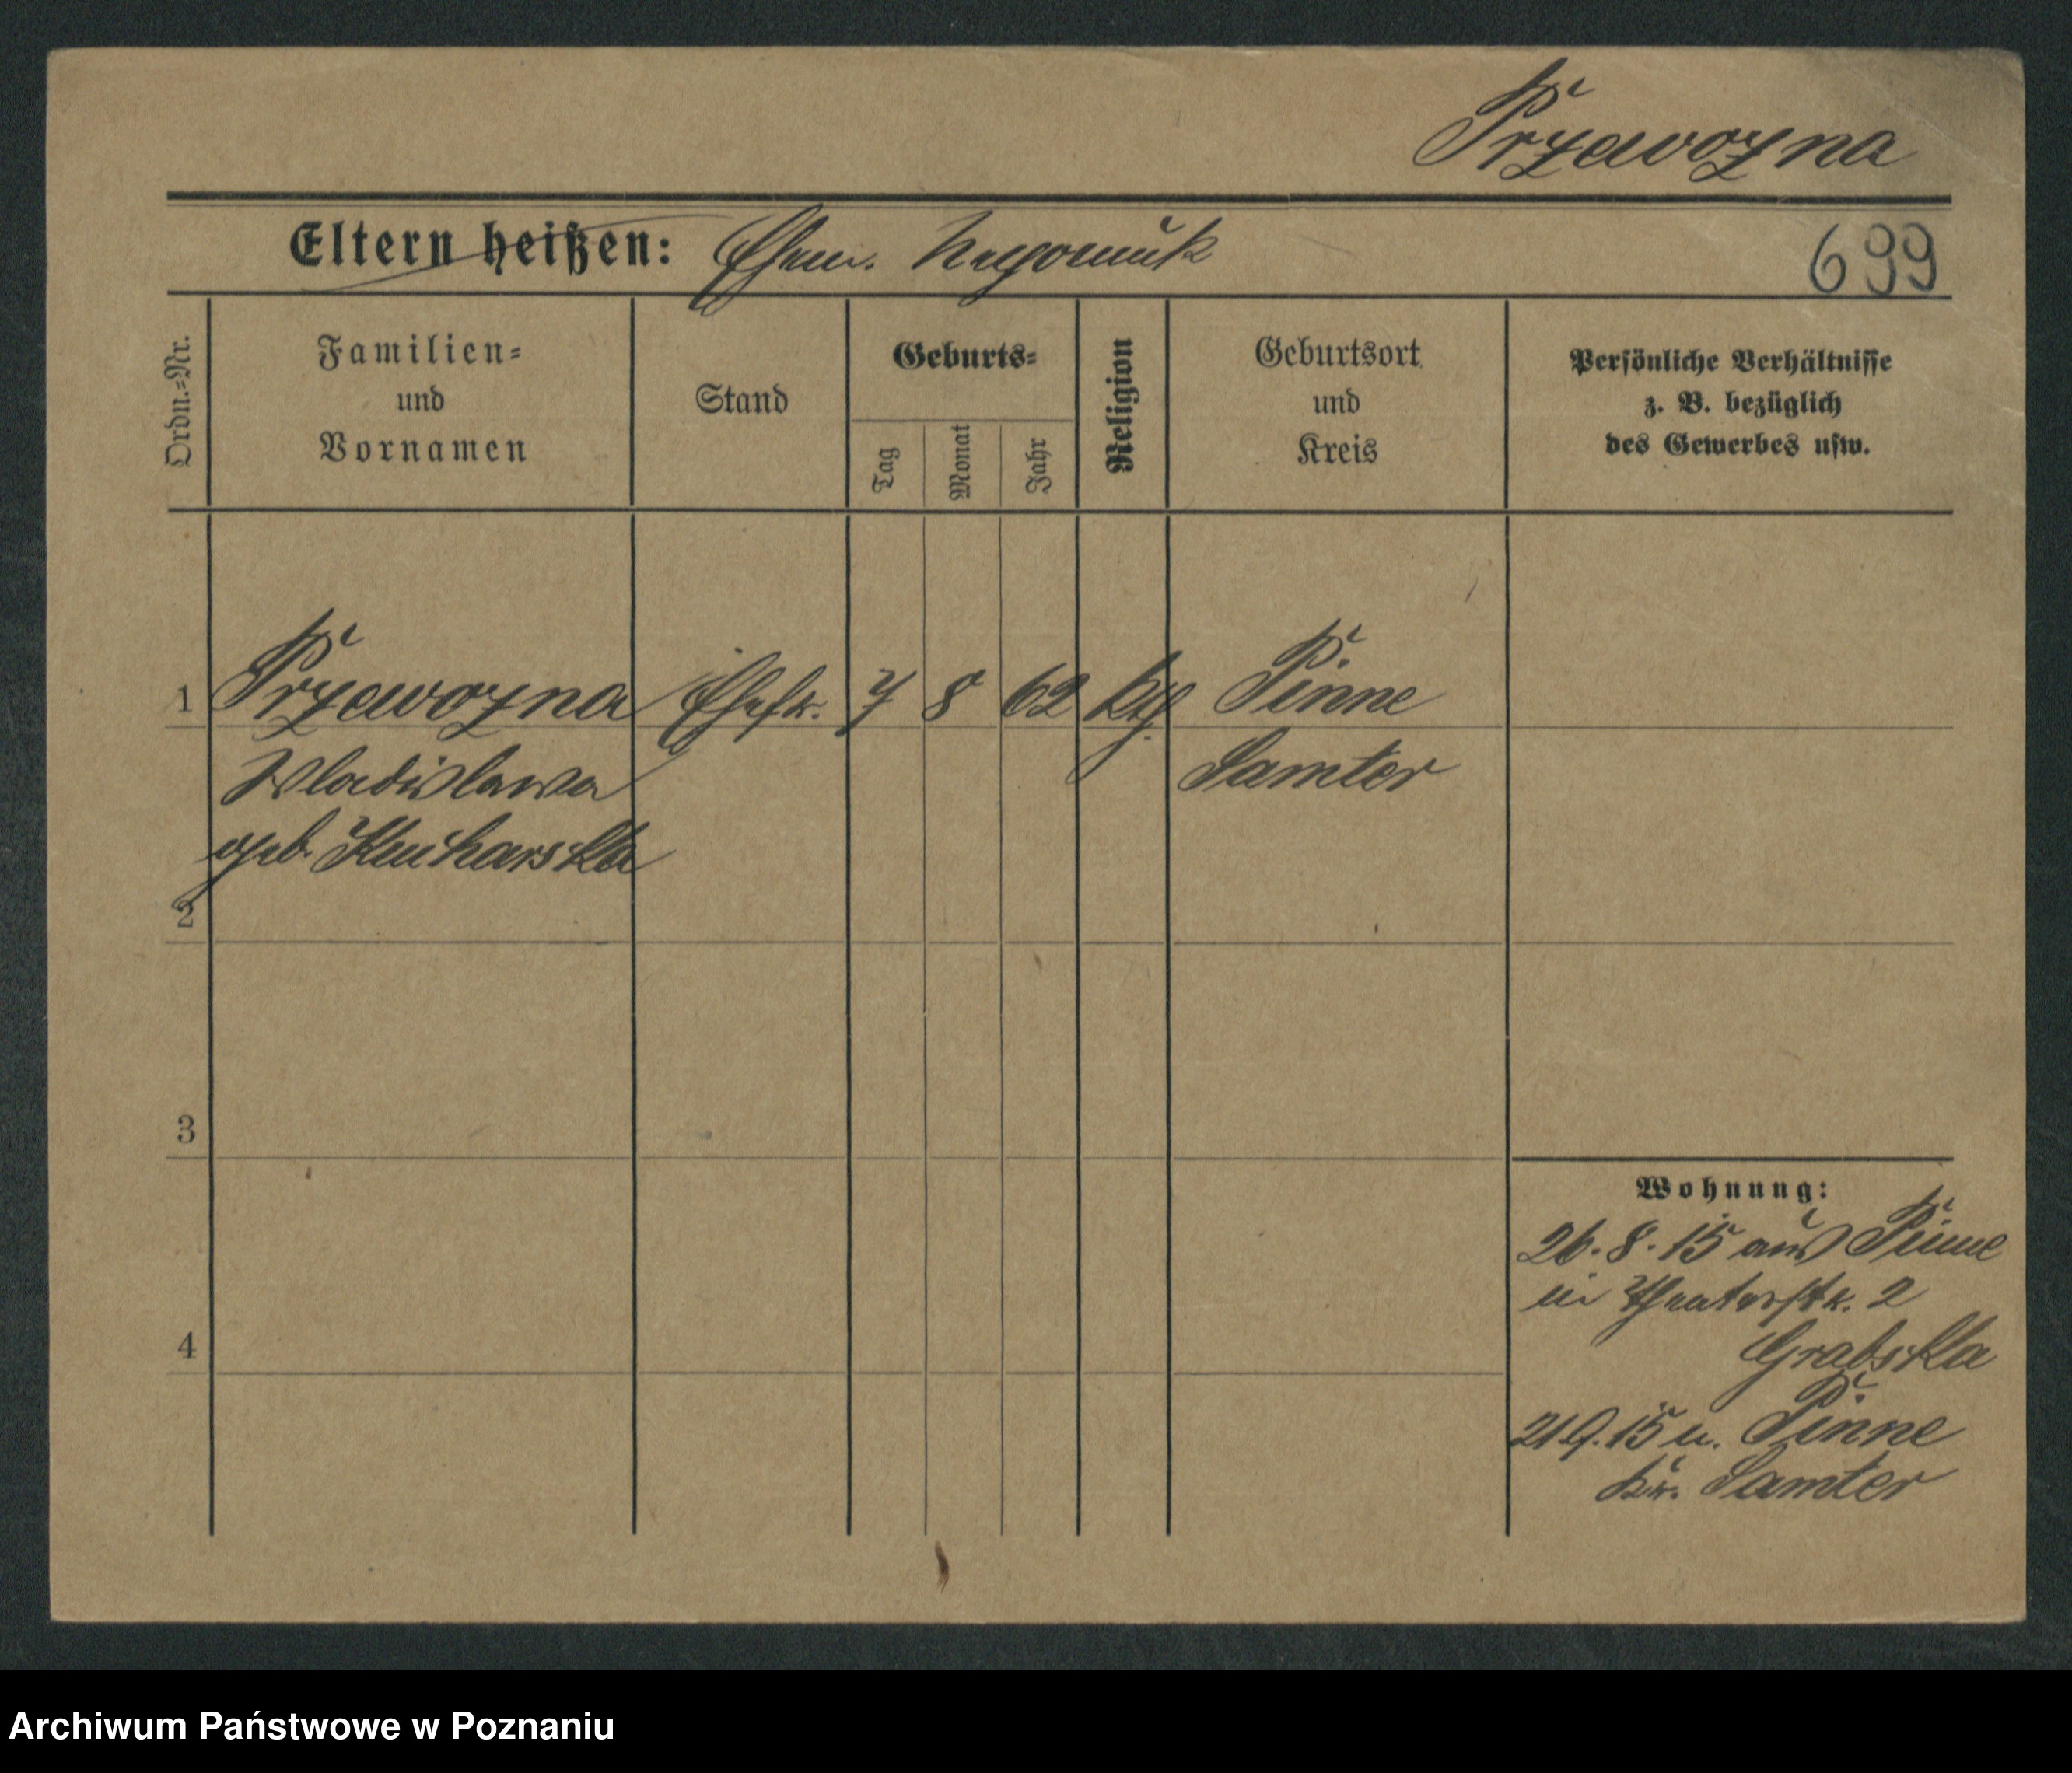 Przewozna
Eltern heißen: Ehem. Nepomuk
699
Ordn.-Nr.
Familien-
und
Vornamen
Stand
Geburts-
Tag
Monat
Jahr
Religion
Geburtsort
und
Kreis
Persönliche Verhältnisse
z. B. bezüglich
des Gewerbes usw.
1 Przewozna Ehefr. 7 8 62 kth. Pinne
Wladislawa Samter
geb. Kucharska
2
3
Wohnung:
26. 8. 15 aus Pinne
in Theaterstr. 2
Grabska
4
21.9.15 n. Pinne
Kr. Samter
Archiwum Państwowe w Poznaniu